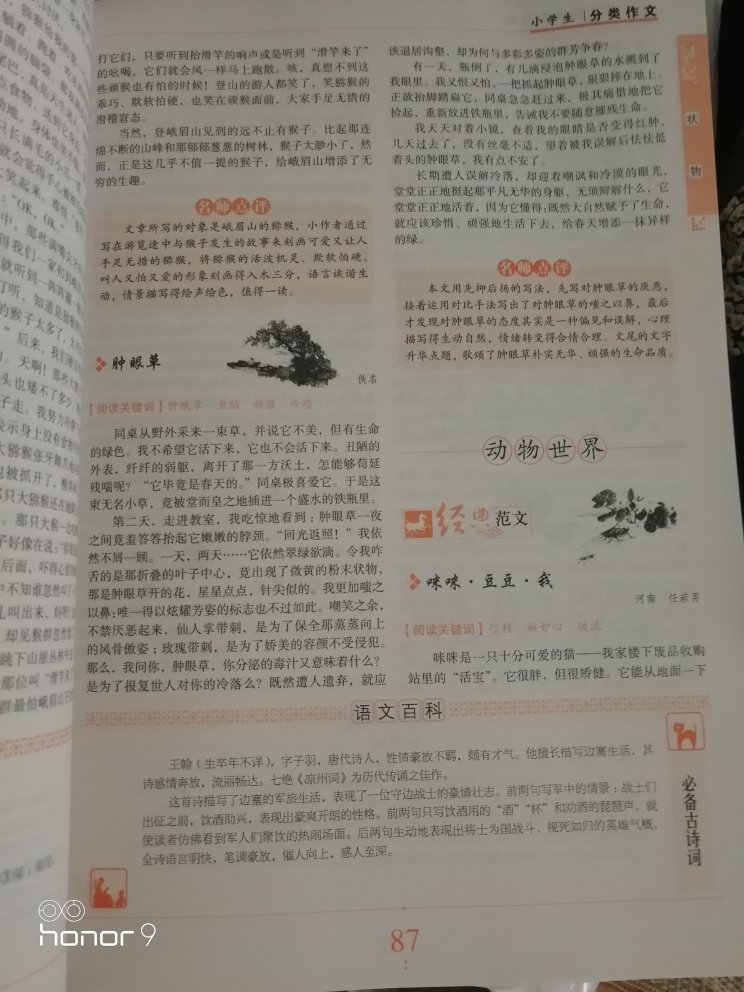 小学生 分类作文
打它们，只要听到抬滑竿的响声或是听到“滑竿来了”
的吆喝，它们就会风一样马上跑散。咳，真想不到这
些顽猴也有怕的时候！登山的游人都笑了，笑猕猴的
乖巧、欺软怕硬，也笑在顽猴面前，大家手足无措的
滑稽窘态。
当然，登峨眉山见到的远不止有猴子。比起那连
绵不断的山峰和那郁郁葱葱的树林，猴子太渺小了，然
而，正是这几乎不值一提的猴子，给峨眉山增添了无
穷的生趣。
名师点评
文章所写的对象是峨眉山的猕猴，小作者通过
写在游览途中与猴子发生的故事来刻画可爱又让人
手足无措的猕猴，将猕猴的活波机灵、欺软怕硬、
叫人又怕又爱的形象刻画得入木三分，语言诙谐生
动，情景描写得绘声绘色，值得一读。
肿眼草
佚名
【阅读关键词】肿眼草 丑陋 顽强 珍惜
同桌从野外采来一束草，并说它不美，但有生命
的绿色。我不希望它活下来，它也不会活下来。丑陋的
外表，纤纤的弱躯，离开了那一方沃土，怎能够苟延
残喘呢？“它毕竟是春天的。”同桌极喜爱它。于是这
束无名小草，竟被堂而皇之地插进一个盛水的铁瓶里。
第二天，走进教室，我吃惊地看到：肿眼草一夜
之间竟羞答答抬起它嫩嫩的脖颈。“回光返照！”我依
然不屑一顾。一天，两天……它依然翠绿欲滴。令我咋
舌的是那折叠的叶子中心，竟出现了微黄的粉末状物，
那是肿眼草开的花，星星点点，针尖似的。我更加嗤之
以鼻：唯一得以炫耀芳姿的标志也不过如此。嘲笑之余，
不禁厌恶起来，仙人掌带刺，是为了保全那蒸蒸向上
的风骨傲姿；玫瑰带刺，是为了娇美的容颜不受侵犯。
那么，我问你，肿眼草，你分泌的毒汁又意味着什么？
是为了报复世人对你的冷落么？既然遭人遗弃，就应
该退居沟壑，却为何与多彩多姿的群芳争春？
有一天，瓶倒了，有几滴浸泡肿眼草的水溅到了
我眼里。我又恨又怕，一把抓起肿眼草，狠狠摔在地上。
正欲抬脚踏扁它，同桌急急赶过来，极其痛惜地把它
捡起，重新放进铁瓶里，告诫我不要随意摧残生命。
我天天对着小镜，查看我的眼睛是否变得红肿，
几天过去了，没有丝毫不适，望着被我误解后怯怯低
着头的肿眼草，我有点不安了。
长期遭人误解冷落，却迎着嘲讽和冷漠的眼光，
堂堂正正地挺起那平凡无华的身躯，无须辩解什么，它
堂堂正正地活着，因为它懂得：既然大自然赋予了生命，
就应该珍惜、顽强地生活下去，给春天增添一抹异样
的绿。
名师点评
本文用先抑后扬的写法，先写对肿眼草的厌恶，
接着运用对比手法写出了对肿眼草的嗤之以鼻，最后
才发现对肿眼草的态度其实是一种偏见和误解，心理
描写得生动自然，情绪转变得合情合理。文尾的文字
升华点题，歌颂了肿眼草朴实无华、顽强的生命品质。
动物世界
经典范文
咪咪·豆豆·我
河南 任若男
【阅读关键词】信赖 嫉妒心 暖流
咪咪是一只十分可爱的猫——我家楼下废品收购
站里的“活宝”。它很胖，但很矫健。它能从地面一下
状物
语文百科
王翰（生卒年不详），字子羽，唐代诗人，性情豪放不羁，颇有才气。他擅长描写边塞生活，其
诗感情奔放，流丽畅达。七绝《凉州词》为历代传诵之佳作。
这首诗描写了边塞的军旅生活，表现了一位守边战士的豪情壮志。前两句写军中的情景：战士们
出征之前，饮酒助兴，表现出豪爽开朗的性格。前两句只写饮酒用的“酒”“杯”和劝酒的琵琶声，就
使读者仿佛看到军人们聚饮的热闹场面。后两句生动地表现出将士为国战斗、视死如归的英雄气概。
全诗语言明快，笔调豪放，催人向上，感人至深。
必备古诗词
87
honor 9